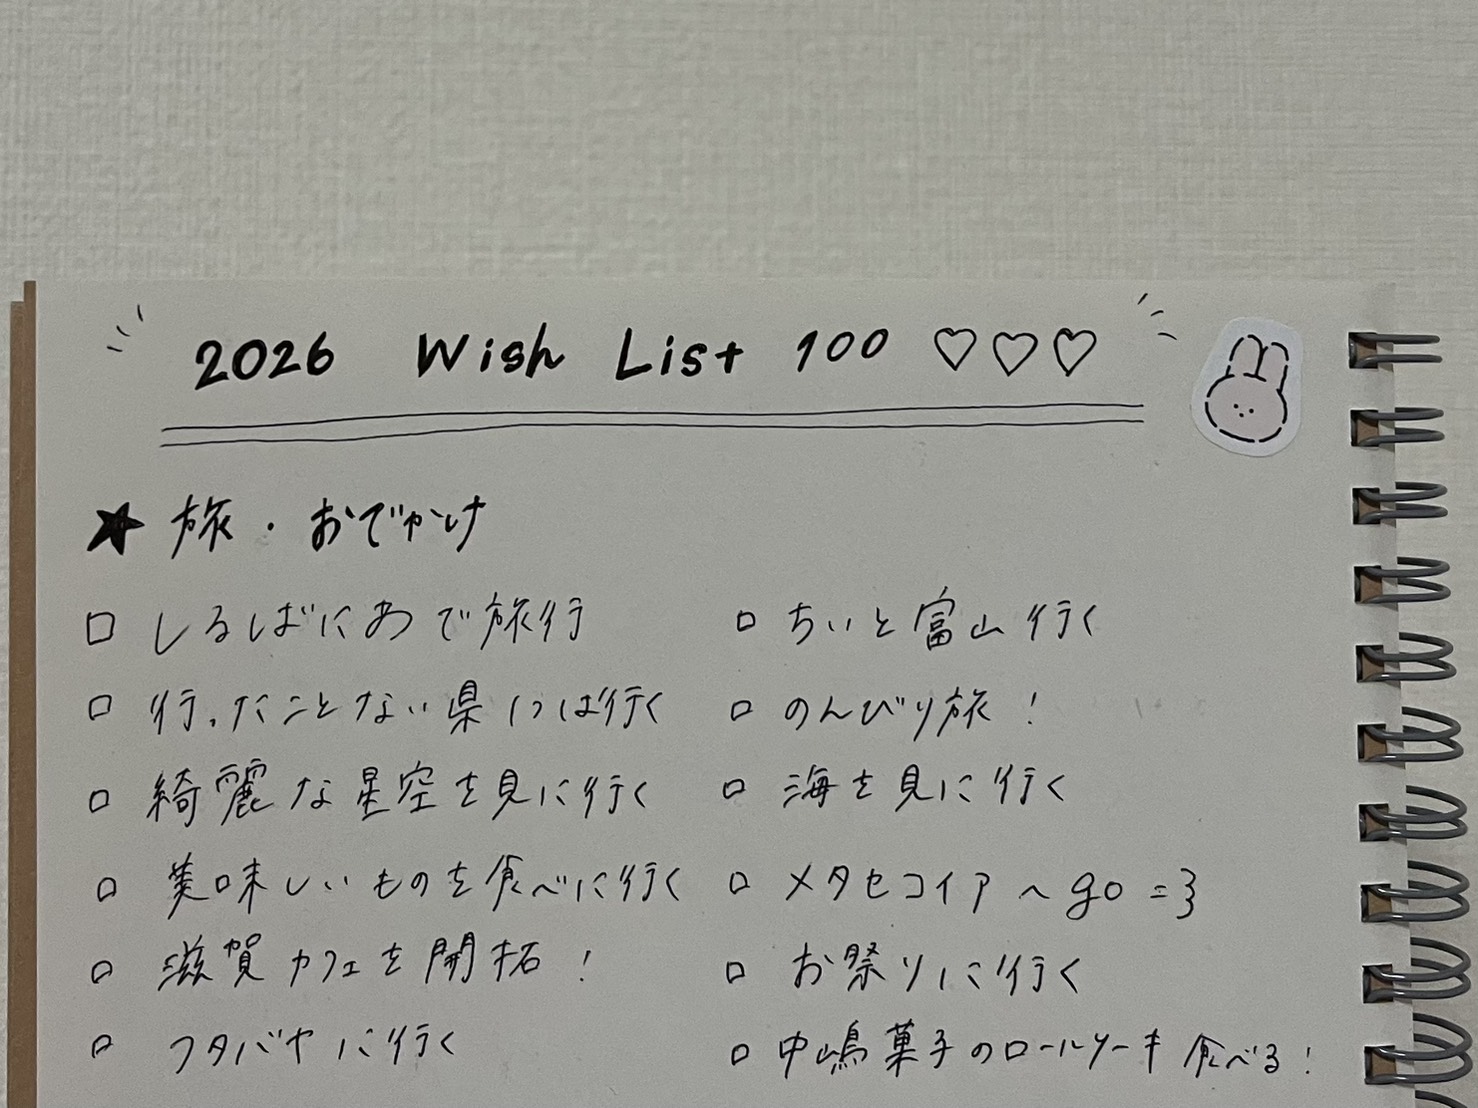 2026 Wish List 100 ♡♡♡
★ 旅・おでかけ
□ しるばにあで旅行
□ 行ったことない県1つは行く
□ 綺麗な星空を見に行く
□ 美味しいものを食べに行く
□ 滋賀カフェを開拓!
□ フタバヤに行く
□ ちいと富山行く
□ のんびり旅!
□ 海を見に行く
□ メタセコイアへgo=3
□ お祭りに行く
□ 中嶋菓子のロールケーキ食べる!